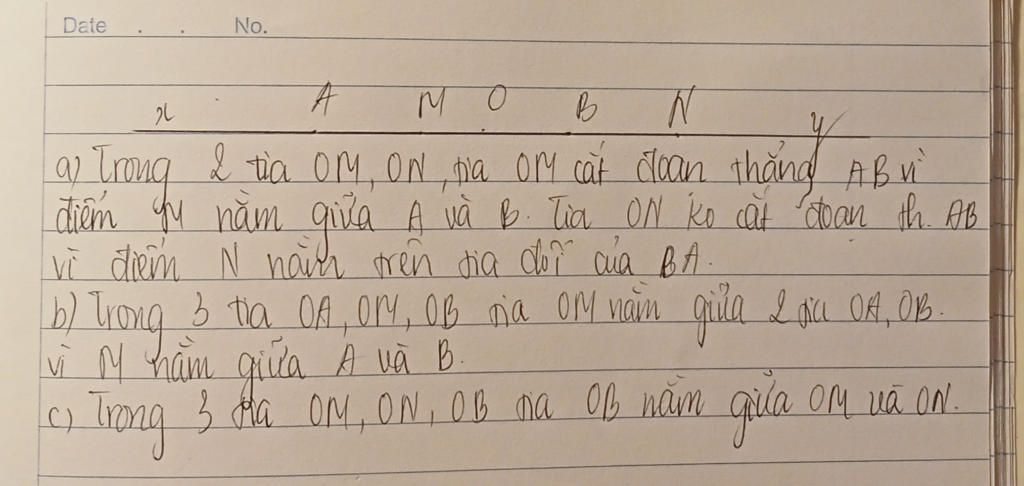 Date . . No.
x A M O B N y
a) Trong 2 tia OM, ON, tia OM cắt đoạn thẳng AB vì
điểm M nằm giữa A và B. Tia ON ko cắt đoạn th. AB
vì điểm N nằm trên tia đối của BA.
b) Trong 3 tia OA, OM, OB tia OM nằm giữa 2 tia OA, OB.
vì M nằm giữa A và B.
c) Trong 3 tia OM, ON, OB tia OB nằm giữa OM và ON.